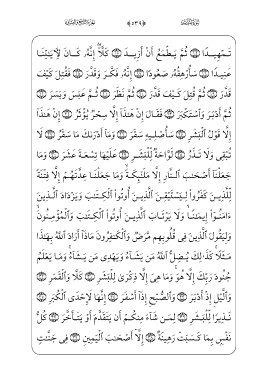 تَمْهِيدًا ۝ ثُمَّ يَطْمَعُ أَنْ أَزِيدَ ۝ كَلَّا ۖ إِنَّهُۥ كَانَ لِـَٔايَـٰتِنَا
عَنِيدًا ۝ سَأُرْهِقُهُۥ صَعُودًا ۝ إِنَّهُۥ فَكَّرَ وَقَدَّرَ ۝ فَقُتِلَ كَيْفَ
قَدَّرَ ۝ ثُمَّ قُتِلَ كَيْفَ قَدَّرَ ۝ ثُمَّ نَظَرَ ۝ ثُمَّ عَبَسَ وَبَسَرَ ۝
ثُمَّ أَدْبَرَ وَٱسْتَكْبَرَ ۝ فَقَالَ إِنْ هَـٰذَآ إِلَّا سِحْرٌ يُؤْثَرُ ۝ إِنْ هَـٰذَآ
إِلَّا قَوْلُ ٱلْبَشَرِ ۝ سَأُصْلِيهِ سَقَرَ ۝ وَمَآ أَدْرَىٰكَ مَا سَقَرُ ۝ لَا
تُبْقِى وَلَا تَذَرُ ۝ لَوَّاحَةٌ لِّلْبَشَرِ ۝ عَلَيْهَا تِسْعَةَ عَشَرَ ۝ وَمَا
جَعَلْنَآ أَصْحَـٰبَ ٱلنَّارِ إِلَّا مَلَـٰٓئِكَةً ۙ وَمَا جَعَلْنَا عِدَّتَهُمْ إِلَّا فِتْنَةً
لِّلَّذِينَ كَفَرُوا۟ لِيَسْتَيْقِنَ ٱلَّذِينَ أُوتُوا۟ ٱلْكِتَـٰبَ وَيَزْدَادَ ٱلَّذِينَ
ءَامَنُوٓا۟ إِيمَـٰنًا ۙ وَلَا يَرْتَابَ ٱلَّذِينَ أُوتُوا۟ ٱلْكِتَـٰبَ وَٱلْمُؤْمِنُونَ ۙ
وَلِيَقُولَ ٱلَّذِينَ فِى قُلُوبِهِم مَّرَضٌ وَٱلْكَـٰفِرُونَ مَاذَآ أَرَادَ ٱللَّهُ بِهَـٰذَا
مَثَلًا ۚ كَذَٰلِكَ يُضِلُّ ٱللَّهُ مَن يَشَآءُ وَيَهْدِى مَن يَشَآءُ ۚ وَمَا يَعْلَمُ
جُنُودَ رَبِّكَ إِلَّا هُوَ ۚ وَمَا هِىَ إِلَّا ذِكْرَىٰ لِلْبَشَرِ ۝ كَلَّا وَٱلْقَمَرِ ۝
وَٱلَّيْلِ إِذْ أَدْبَرَ ۝ وَٱلصُّبْحِ إِذَآ أَسْفَرَ ۝ إِنَّهَا لَإِحْدَى ٱلْكُبَرِ ۝
نَذِيرًا لِّلْبَشَرِ ۝ لِمَن شَآءَ مِنكُمْ أَن يَتَقَدَّمَ أَوْ يَتَأَخَّرَ ۝ كُلُّ
نَفْسٍۭ بِمَا كَسَبَتْ رَهِينَةٌ ۝ إِلَّآ أَصْحَـٰبَ ٱلْيَمِينِ ۝ فِى جَنَّـٰتٍ